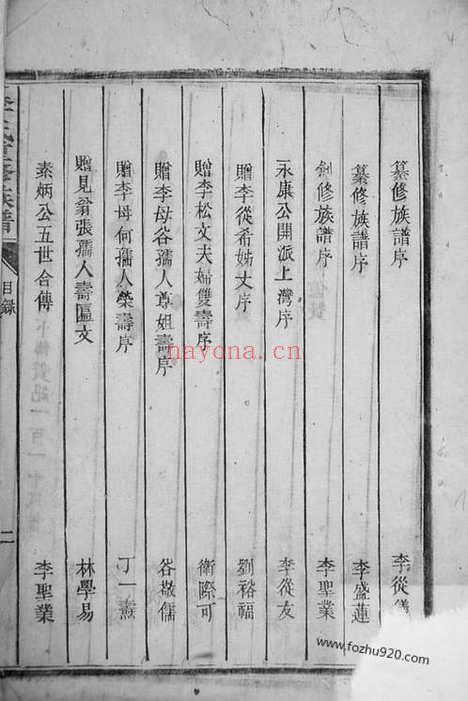 纂修族譜序 李從
纂修族譜序 李盛蓮
創修族譜序 李聖業
永康公開派上灣序 李從友
贈李從希姊丈序 劉裕福
贈李松文夫婦雙壽序 衛際可
贈李母谷孺人尊姐壽序 谷敬儒
贈李母何孺人榮壽序 丁一燾
贈見翁張孺人壽區文 林學易
素炳公五世合傳 李聖業
族譜
目錄
二
nayona.cn
www.fozhu920.com